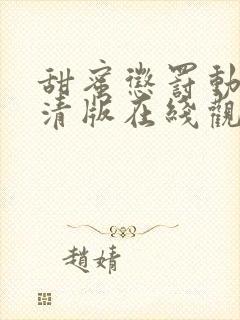 甜蜜懲罰動
清版在綫觀
趙婧